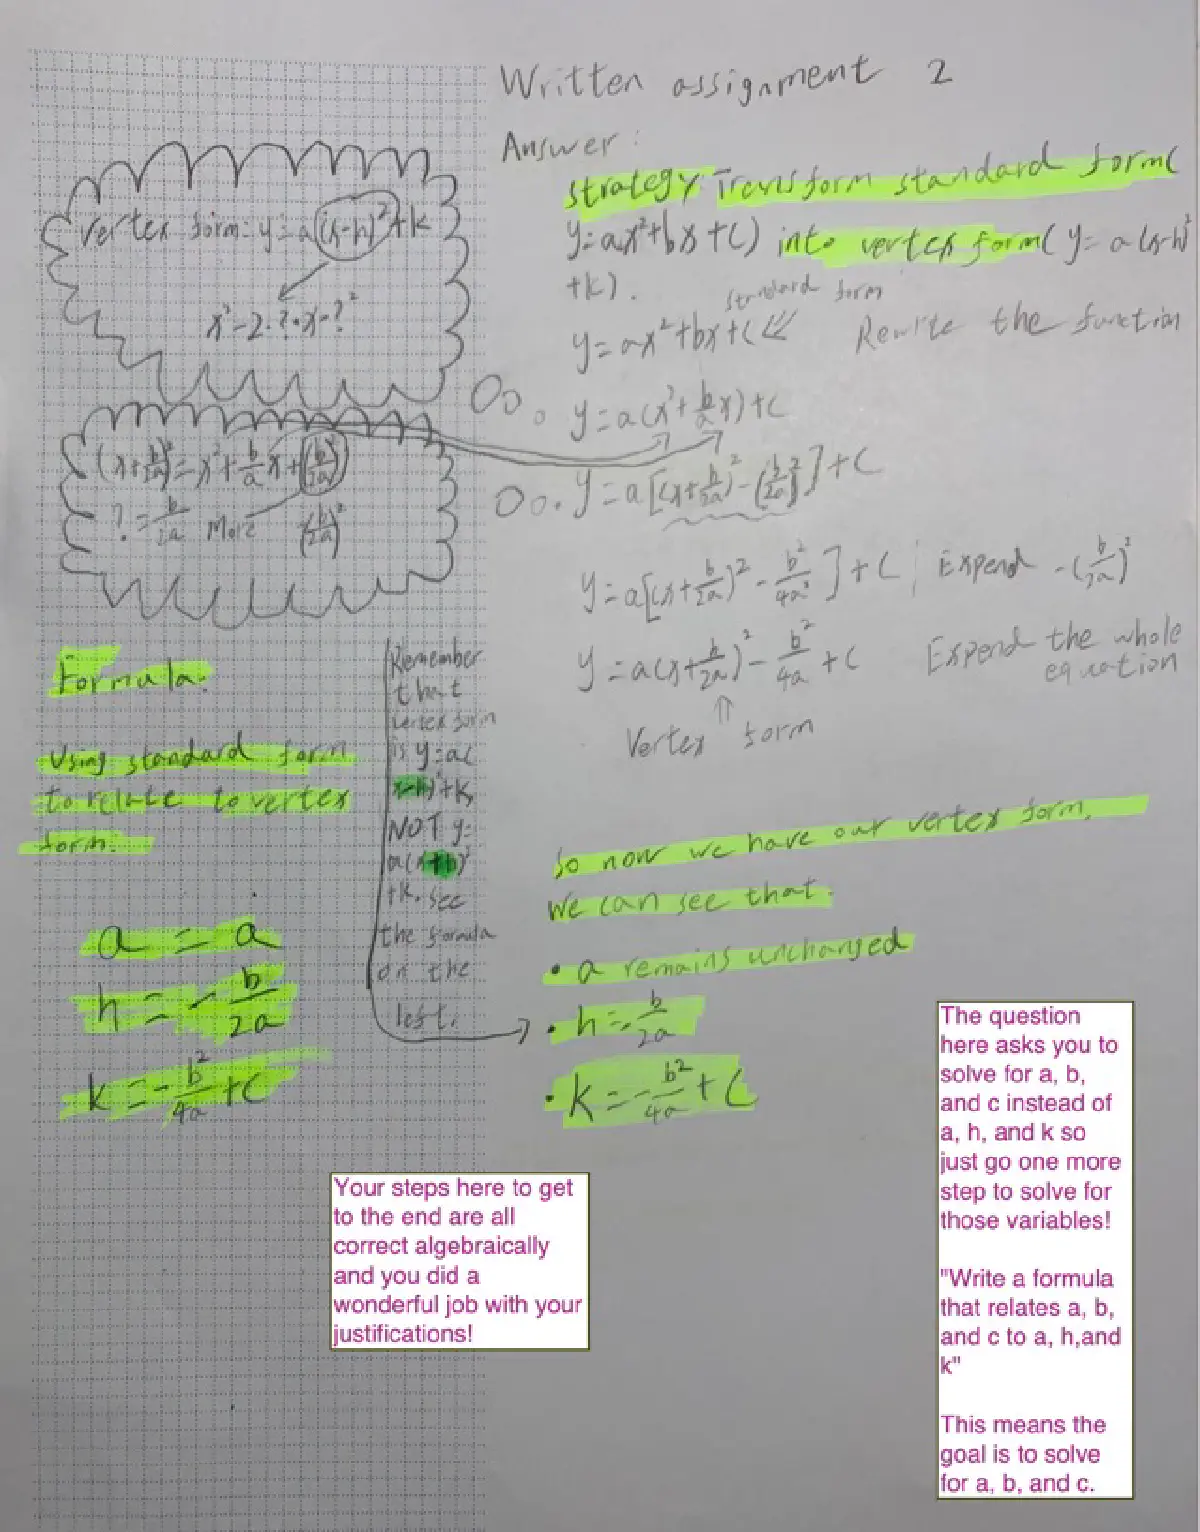 Written assignment 2
Answer:
strategy: Transform standard form(
y=ax²+bx+c) into vertex form( y= a(x-h)²
+k).
standard form
y=ax²+bx+c Rewrite the function
y=a(x²+b/a x)+c
y=a[(x+b/2a)²-(b/2a)²]+c
y=a[(x+b/2a)²-b²/4a²]+c Expend -(b/2a)²
y=a(x+b/2a)²-b²/4a+c Expend the whole
equation
⇑
Vertex form
So now we have our vertex form,
We can see that.
• a remains unchanged
• h=-b/2a
• k=-b²/4a+c
vertex form: y=a(x-h)²+k
x²-2·?·x-?²
(x+b/2a)²=x²+b/a x+(b/2a)²
?=b/2a More (b/2a)²
Formula:
Using standard form
to relate to vertex
form:
a = a
h = -b/2a
k = -b²/4a+c
Remember
that
vertex form
is y=a(
x-h)²+k,
NOT y=
a(x+h)²
+k. see
the formula
on the
left.
Your steps here to get
to the end are all
correct algebraically
and you did a
wonderful job with your
justifications!
The question
here asks you to
solve for a, b,
and c instead of
a, h, and k so
just go one more
step to solve for
those variables!
"Write a formula
that relates a, b,
and c to a, h,and
k"
This means the
goal is to solve
for a, b, and c.